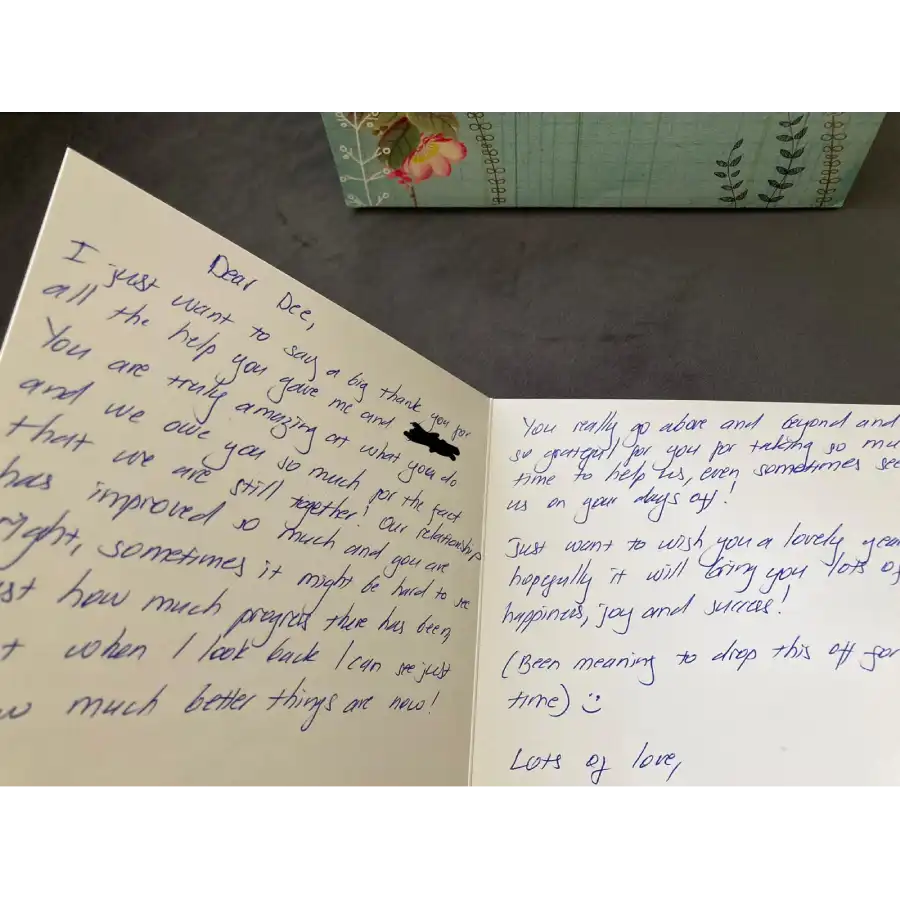 Dear Dee,
I just want to say a big thank you for
all the help you gave me and
You are truly amazing at what you do
and we owe you so much for the fact
that we are still together! Our relationship
has improved so much and you are
right, sometimes it might be hard to see
st how much progress there has been,
t when I look back I can see just
w much better things are now!
You really go above and beyond and
so grateful for you for taking so mu
time to help us, even sometimes see
us on your days off!
Just want to wish you a lovely year
hopefully it will bring you lots of
happiness, joy and success!
(Been meaning to drop this off for
time) :)
Lots of love,